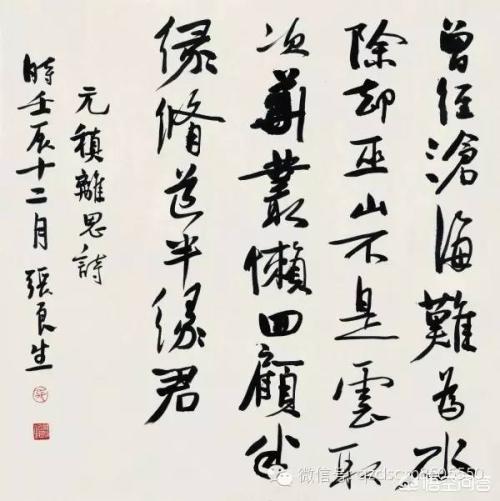 曾經滄海難為水
除却巫山不是雲取
次華叢懶回顧半
緣脩道半緣君
元稹離思詩
時壬辰十二月 張良生
微信号:
悟空问答